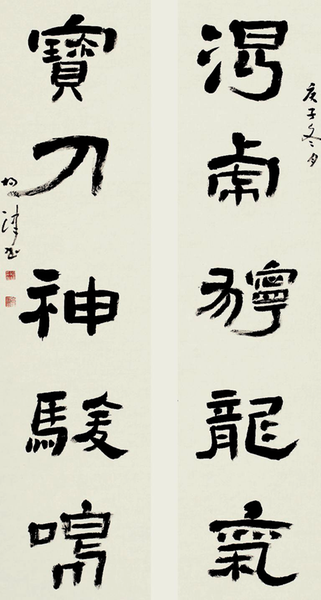 庚子冬月
渴虎獰龍氣
寶刀神駿鳴